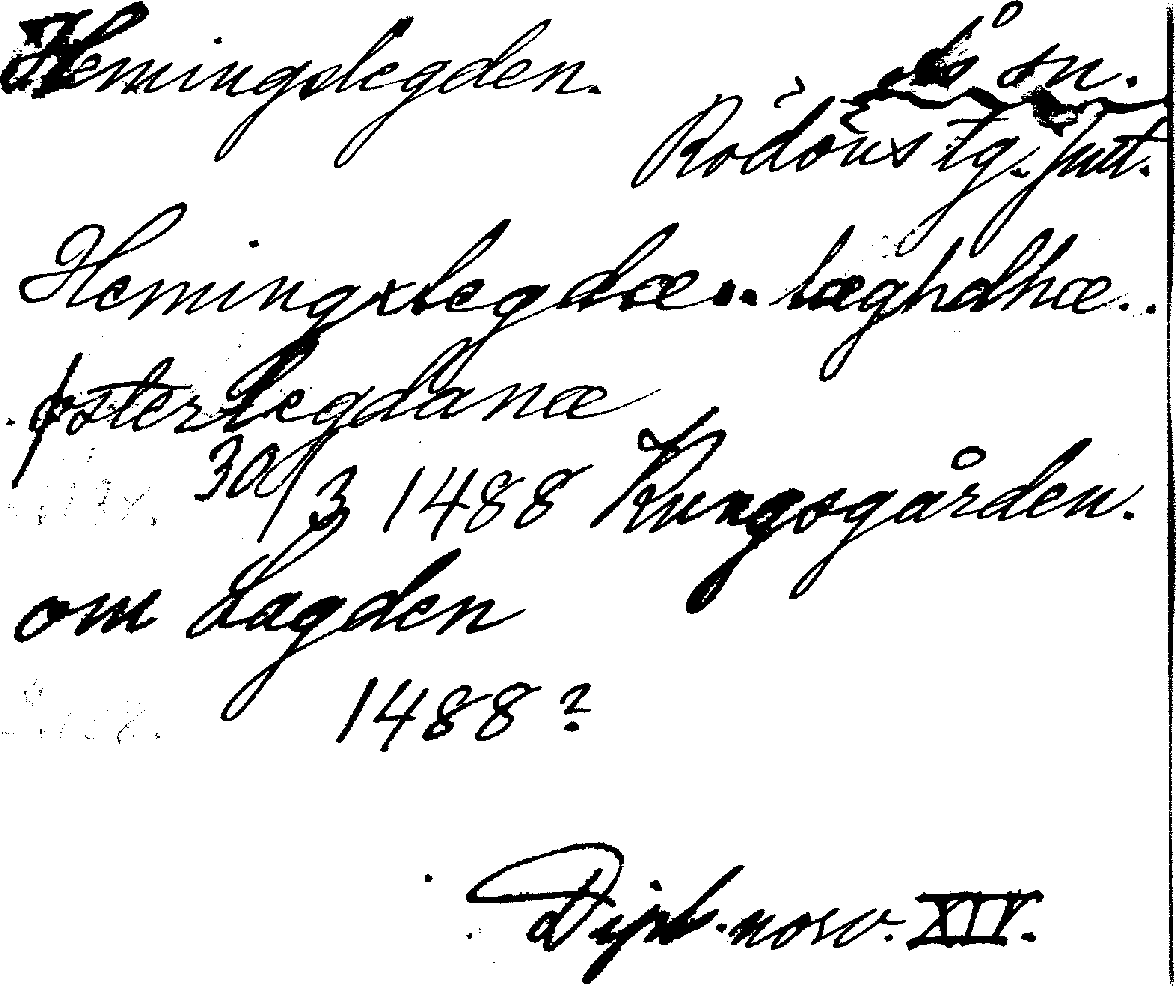 Hemingslegden. Ås sn.
Rödöns tg. Jmt.
Hemingxlegdæ.. læghdhæ..
østerlegdanæ
30/3 1488 Kungsgården.
om Lagden
1488?
Dipl. norv. XIV.